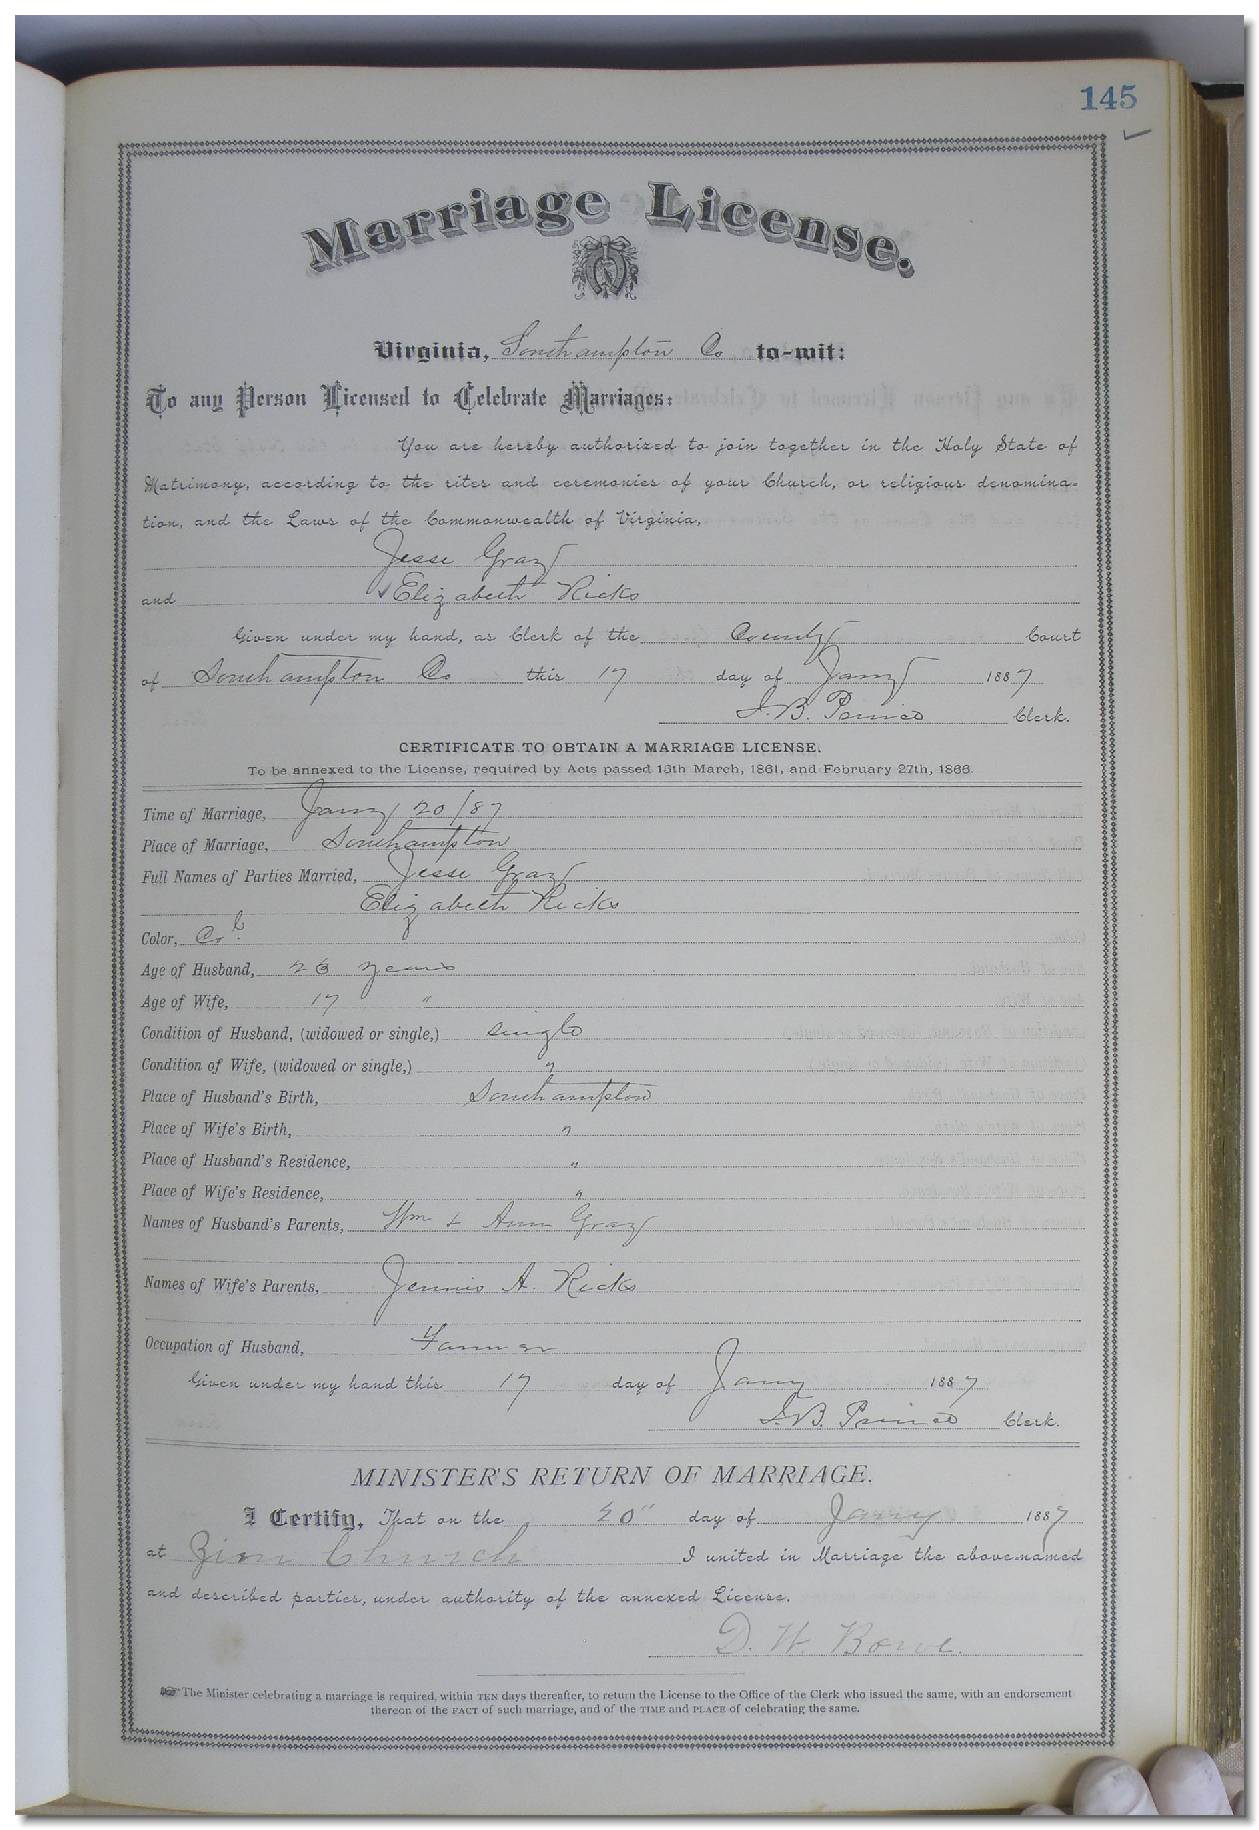 145
Marriage License.
Virginia, Southampton Co to-wit:
To any Person Licensed to Celebrate Marriages:
You are hereby authorized to join together in the Holy State of
Matrimony, according to the rites and ceremonies of your Church, or religious denomina-
tion, and the Laws of the Commonwealth of Virginia,
Jesse Gray
and Elizabeth Ricks
Given under my hand, as Clerk of the County Court
of Southampton Co this 17 day of Jany 1887
B. Prince Clerk.
CERTIFICATE TO OBTAIN A MARRIAGE LICENSE.
To be annexed to the License, required by Acts passed 15th March, 1861, and February 27th, 1866.
Time of Marriage, Jany 20/87
Place of Marriage, Southampton
Full Names of Parties Married, Jesse Gray
Elizabeth Ricks
Color, Col.
Age of Husband, 23 years
Age of Wife, 17 "
Condition of Husband, (widowed or single,) single
Condition of Wife, (widowed or single,) "
Place of Husband's Birth, Southampton
Place of Wife's Birth, "
Place of Husband's Residence, "
Place of Wife's Residence, "
Names of Husband's Parents, Wm & Ann Gray
Names of Wife's Parents, Jennie A. Ricks
Occupation of Husband, Farmer
Given under my hand this 17 day of Jany 1887
B. Prince Clerk.
MINISTER'S RETURN OF MARRIAGE.
I Certify, That on the 20" day of Jany 1887
at Zion Church I united in Marriage the above-named
and described parties, under authority of the annexed License.
D. W. Bowe.
The Minister celebrating a marriage is required, within TEN days thereafter, to return the License to the Office of the Clerk who issued the same, with an endorsement
thereon of the FACT of such marriage, and of the TIME and PLACE of celebrating the same.